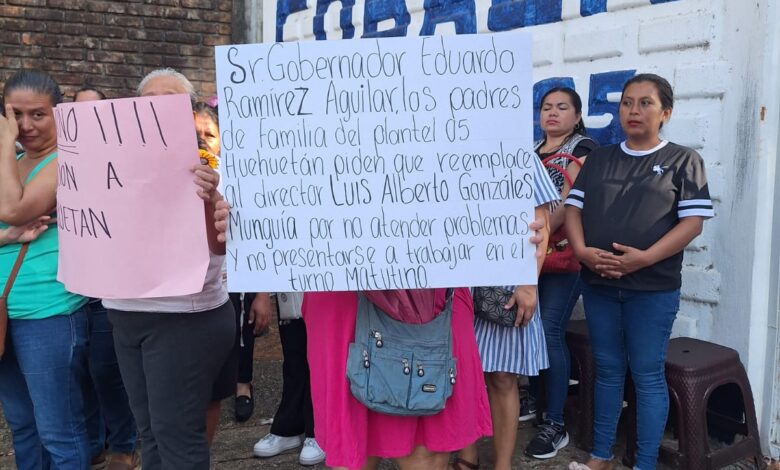 NO!!!!
ON A
UETAN
Sr. Gobernador Eduardo
Ramírez Aguilar, los padres
de familia del plantel 05
Huehuetán piden que reemplace
al director Luis Alberto Gonzáles
Munguía por no atender problemas
y no presentarse a trabajar en el
turno Matutino